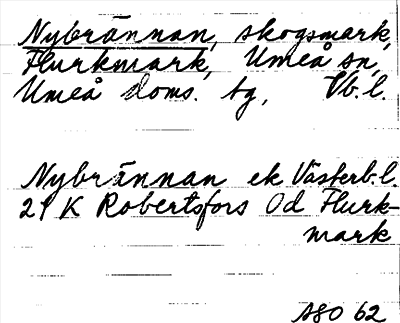 Nybrännan, skogsmark,
Flurkmark, Umeå sn,
Umeå doms. tg, Vb. l.
Nybrännan ek Västerb. l.
21 K Robertsfors Od Flurk-
mark
ASO 62